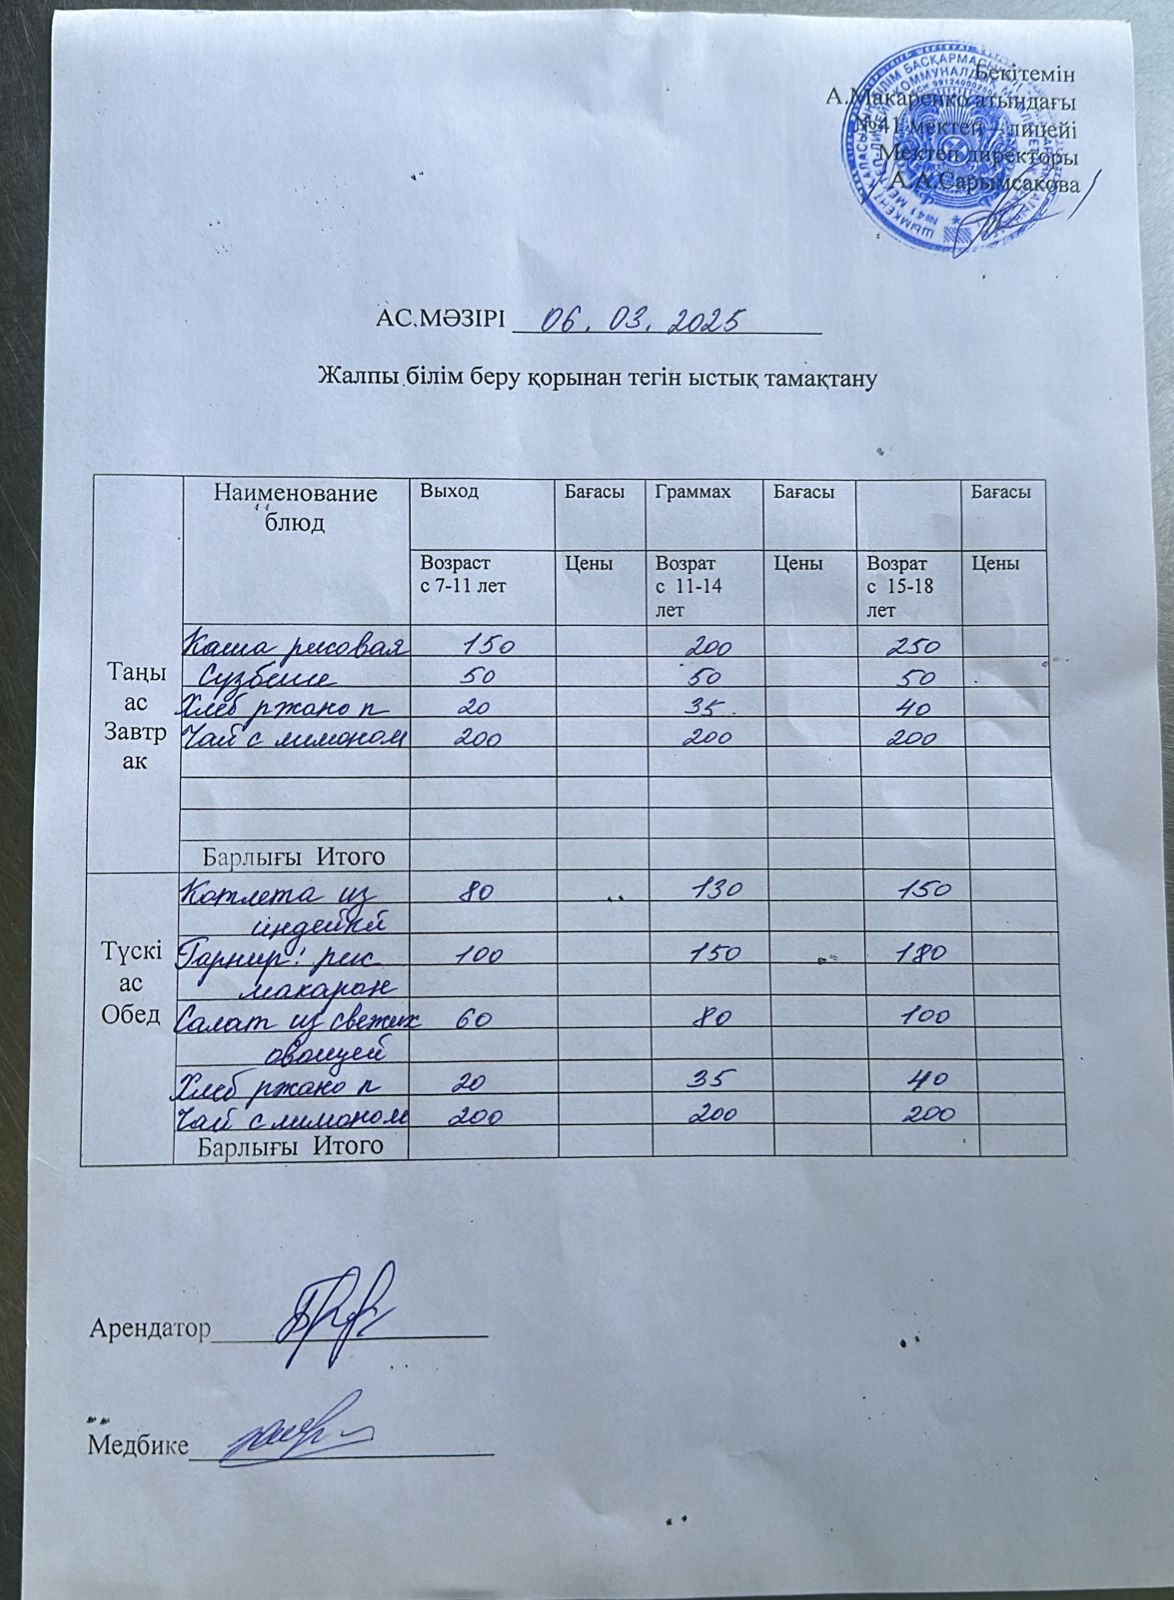 Бекітемін
А.Макаренко атындағы
№41 мектеп – лицейі
Мектеп директоры
А.А.Сарымсакова
АС.МӘЗІРІ 06.03.2025
Жалпы білім беру қорынан тегін ыстық тамақтану
Наименование блюд Выход Бағасы Граммах Бағасы Бағасы
Возраст с 7-11 лет Цены Возрат с 11-14 лет Цены Возрат с 15-18 лет Цены
Таңы ас Завтрак
Каша рисовая 150 200 250
Сузбеше 50 50 50
Хлеб ржано п 20 35 40
Чай с лимоном 200 200 200
Барлығы Итого
Түскі ас Обед
Котлета из 80 130 150
индейки
Гарнир: рис 100 150 180
макарон
Салат из свежих 60 80 100
овощей
Хлеб ржано п 20 35 40
Чай с лимоном 200 200 200
Барлығы Итого
Арендатор
Медбике